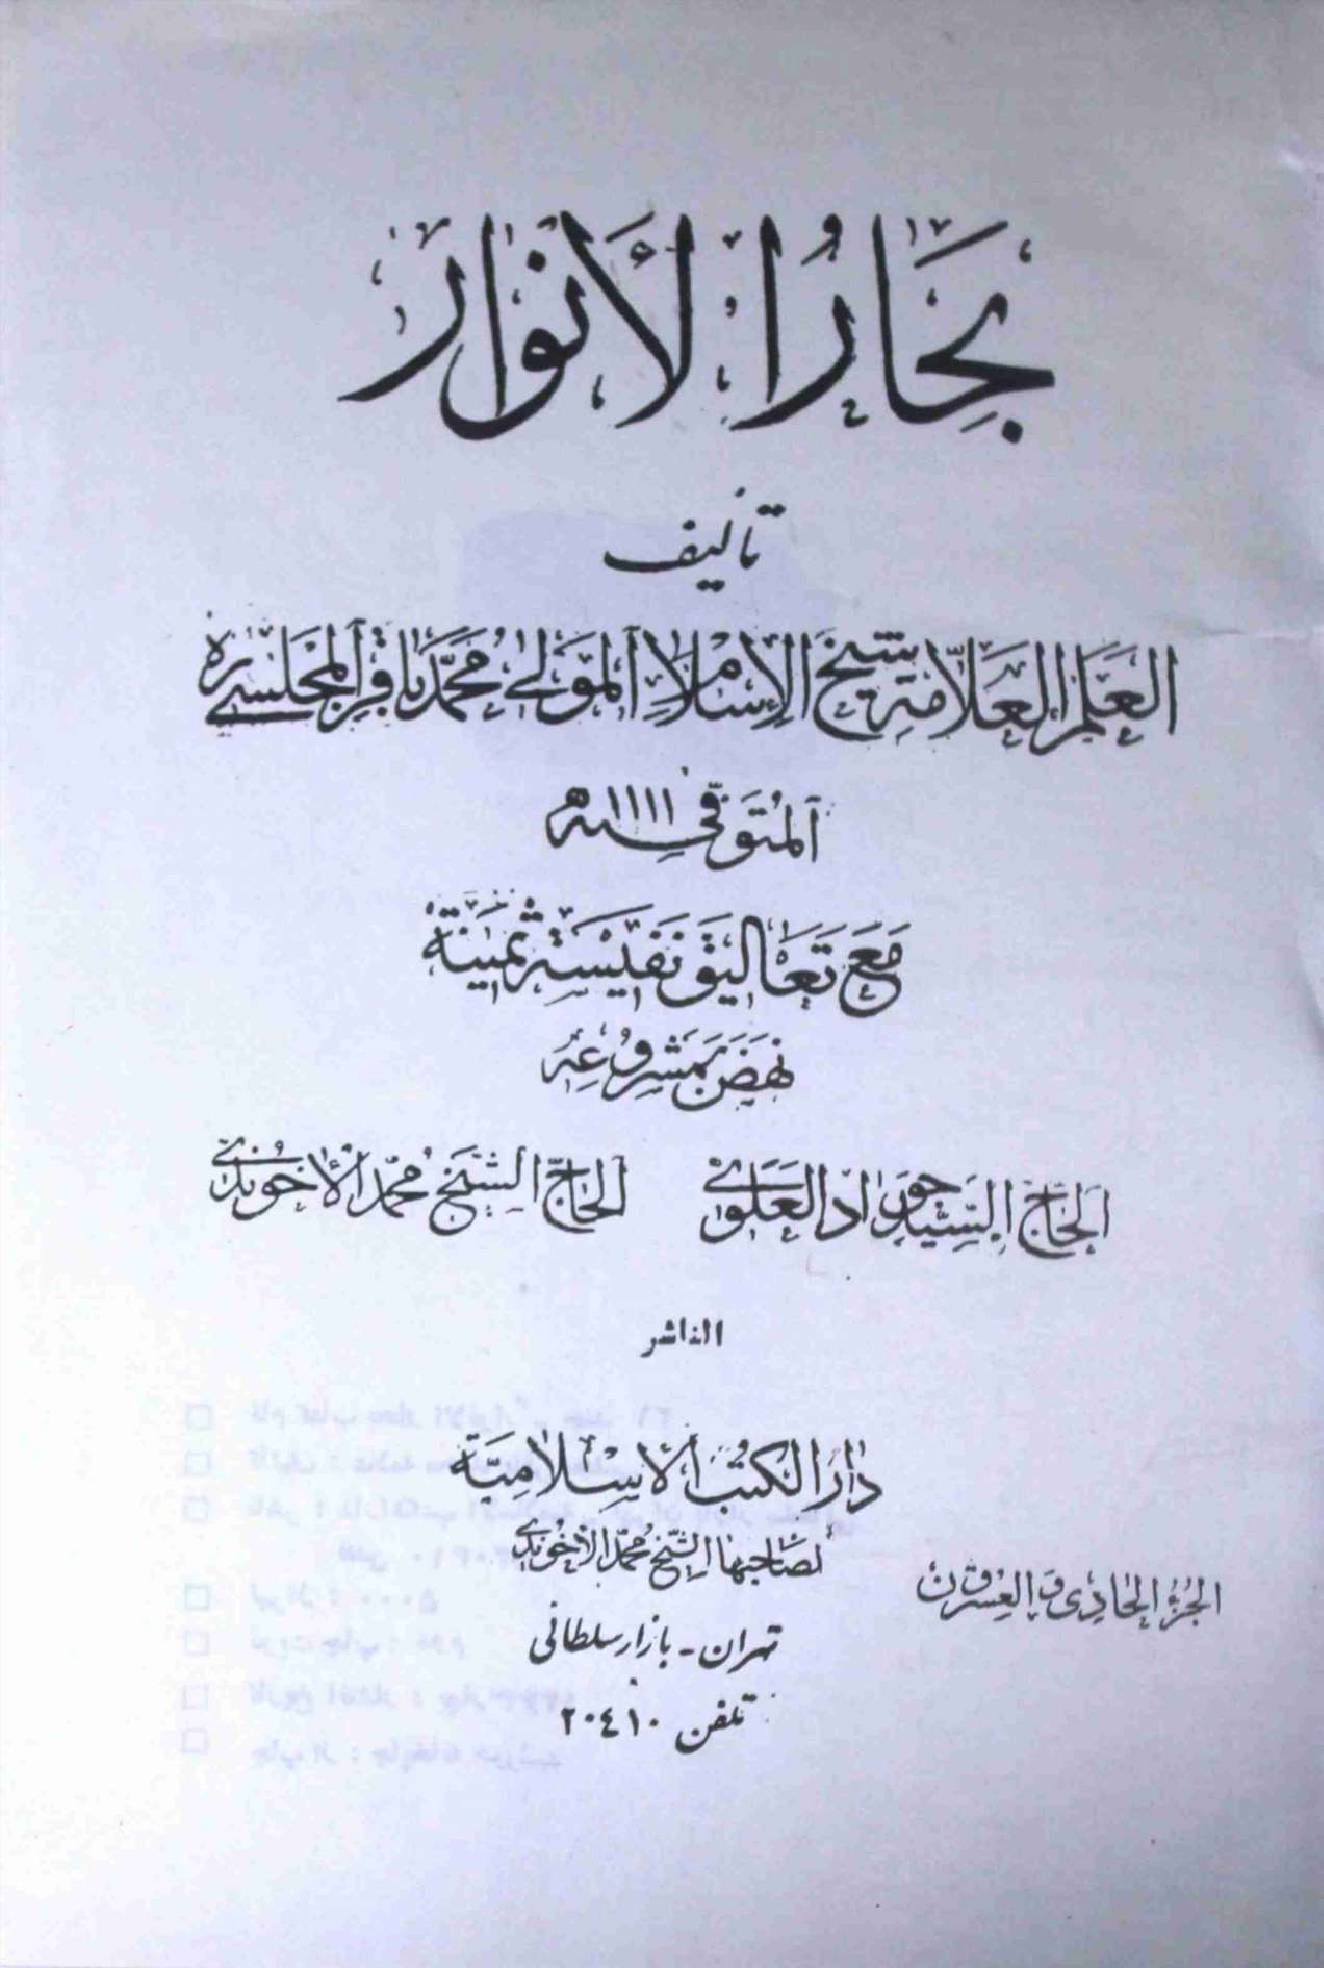 بحار الأنوار
تأليف
العلم العلامة شيخ الإسلام المولى محمد باقر المجلسي قدس سره
المتوفى سنة ١١١١ هـ
مع تعاليق نفيسة ثمينة
نهض بمشروعه
الحاج السيد جواد العلوي الحاج الشيخ محمد الآخوندي
الناشر
دار الكتب الإسلامية
لصاحبها الشيخ محمد الآخوندي
الجزء الحادي والعشرون
تهران - بازار سلطانى
تلفن ٢٠٤١٠